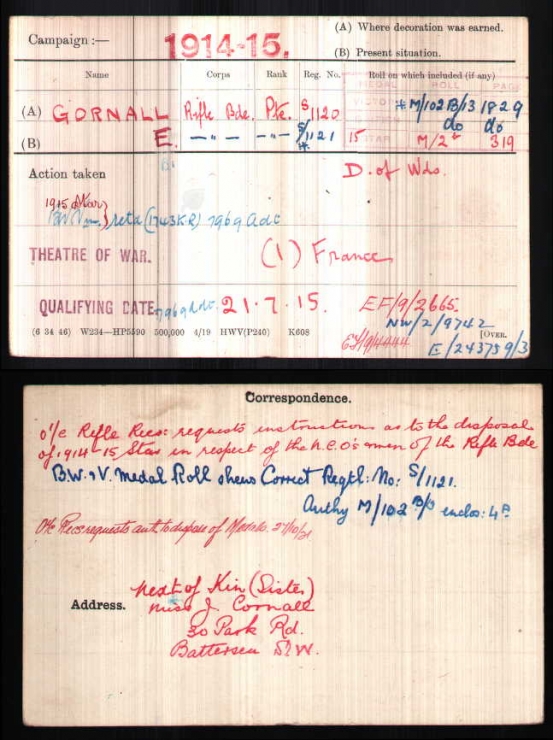 Campaign :—
1914-15.
(A) Where decoration was earned.
(B) Present situation.
Name
Corps
Rank
Reg. No.
Roll on which included (if any)
MEDAL ROLL PAGE
(A) GORNALL Rifle Bde. Pte. S/1120 M/102 B/13 1829
(B) E. —"— —"— S/1121 do do
15 STAR M/2 319
Action taken
D. of Wds.
1915 Star
retd (1743 K.R) 7969 Adc
THEATRE OF WAR.
(1) France
QUALIFYING DATE 21.7.15.
EF/9/2665.
NW/2/9742
(6 34 46) W234—HP5590 500,000 4/19 HWV(P240) K608
[OVER.
E/24375 9/3
Correspondence.
o/c Rifle Recs: requests instructions as to the disposal
of 1914-15 Star in respect of the N.C.O's & men of the Rifle Bde
B.W. & V. Medal Roll shews Correct Regtl: No: S/1121.
Authy M/102 B/13 enclos: 4A
O/c Recs requests auth to dispose of Medals. 27/10/21
Address.
Next of Kin (Sister)
Miss J. Cornall
30 Park Rd.
Battersea S.W.